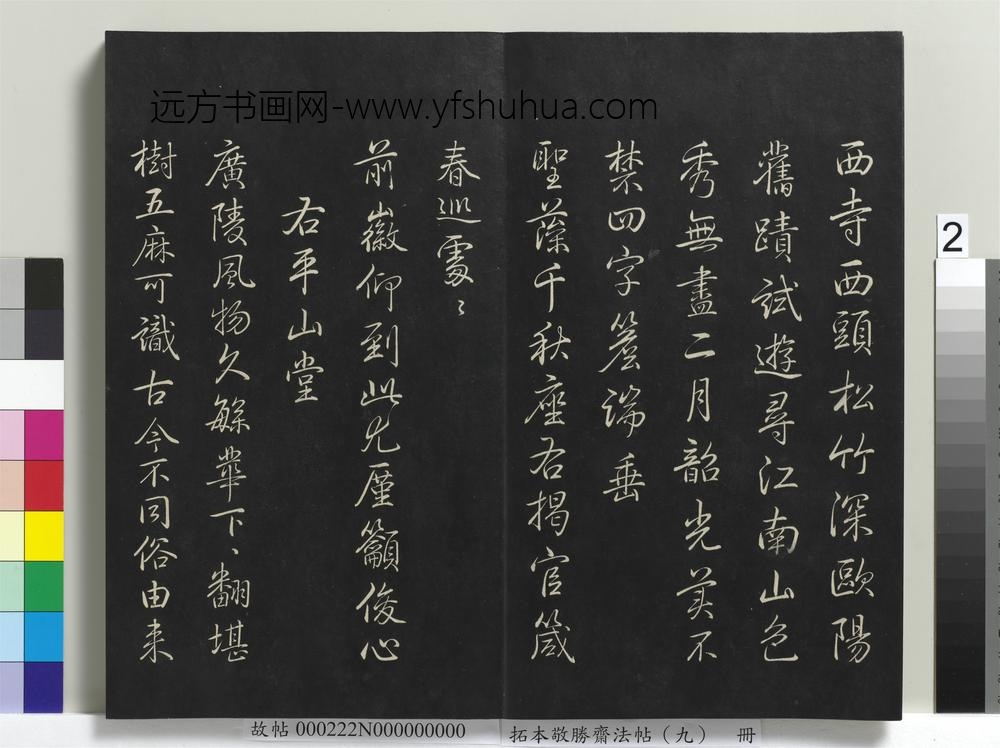 西寺西頭松竹深歐陽
舊蹟試遊尋江南山色
秀無盡二月韶光美不
禁四字簷端垂
聖藻千秋座右揭官箴
春巡處〻
前徽仰到此尤廑籲俊心
右平山堂
廣陵風物久繇華下、翻堪
樹五麻可識古今不同俗由来
远方书画网-www.yfshuhua.com
2
故帖 000222N000000000
拓本敬勝齋法帖（九） 冊